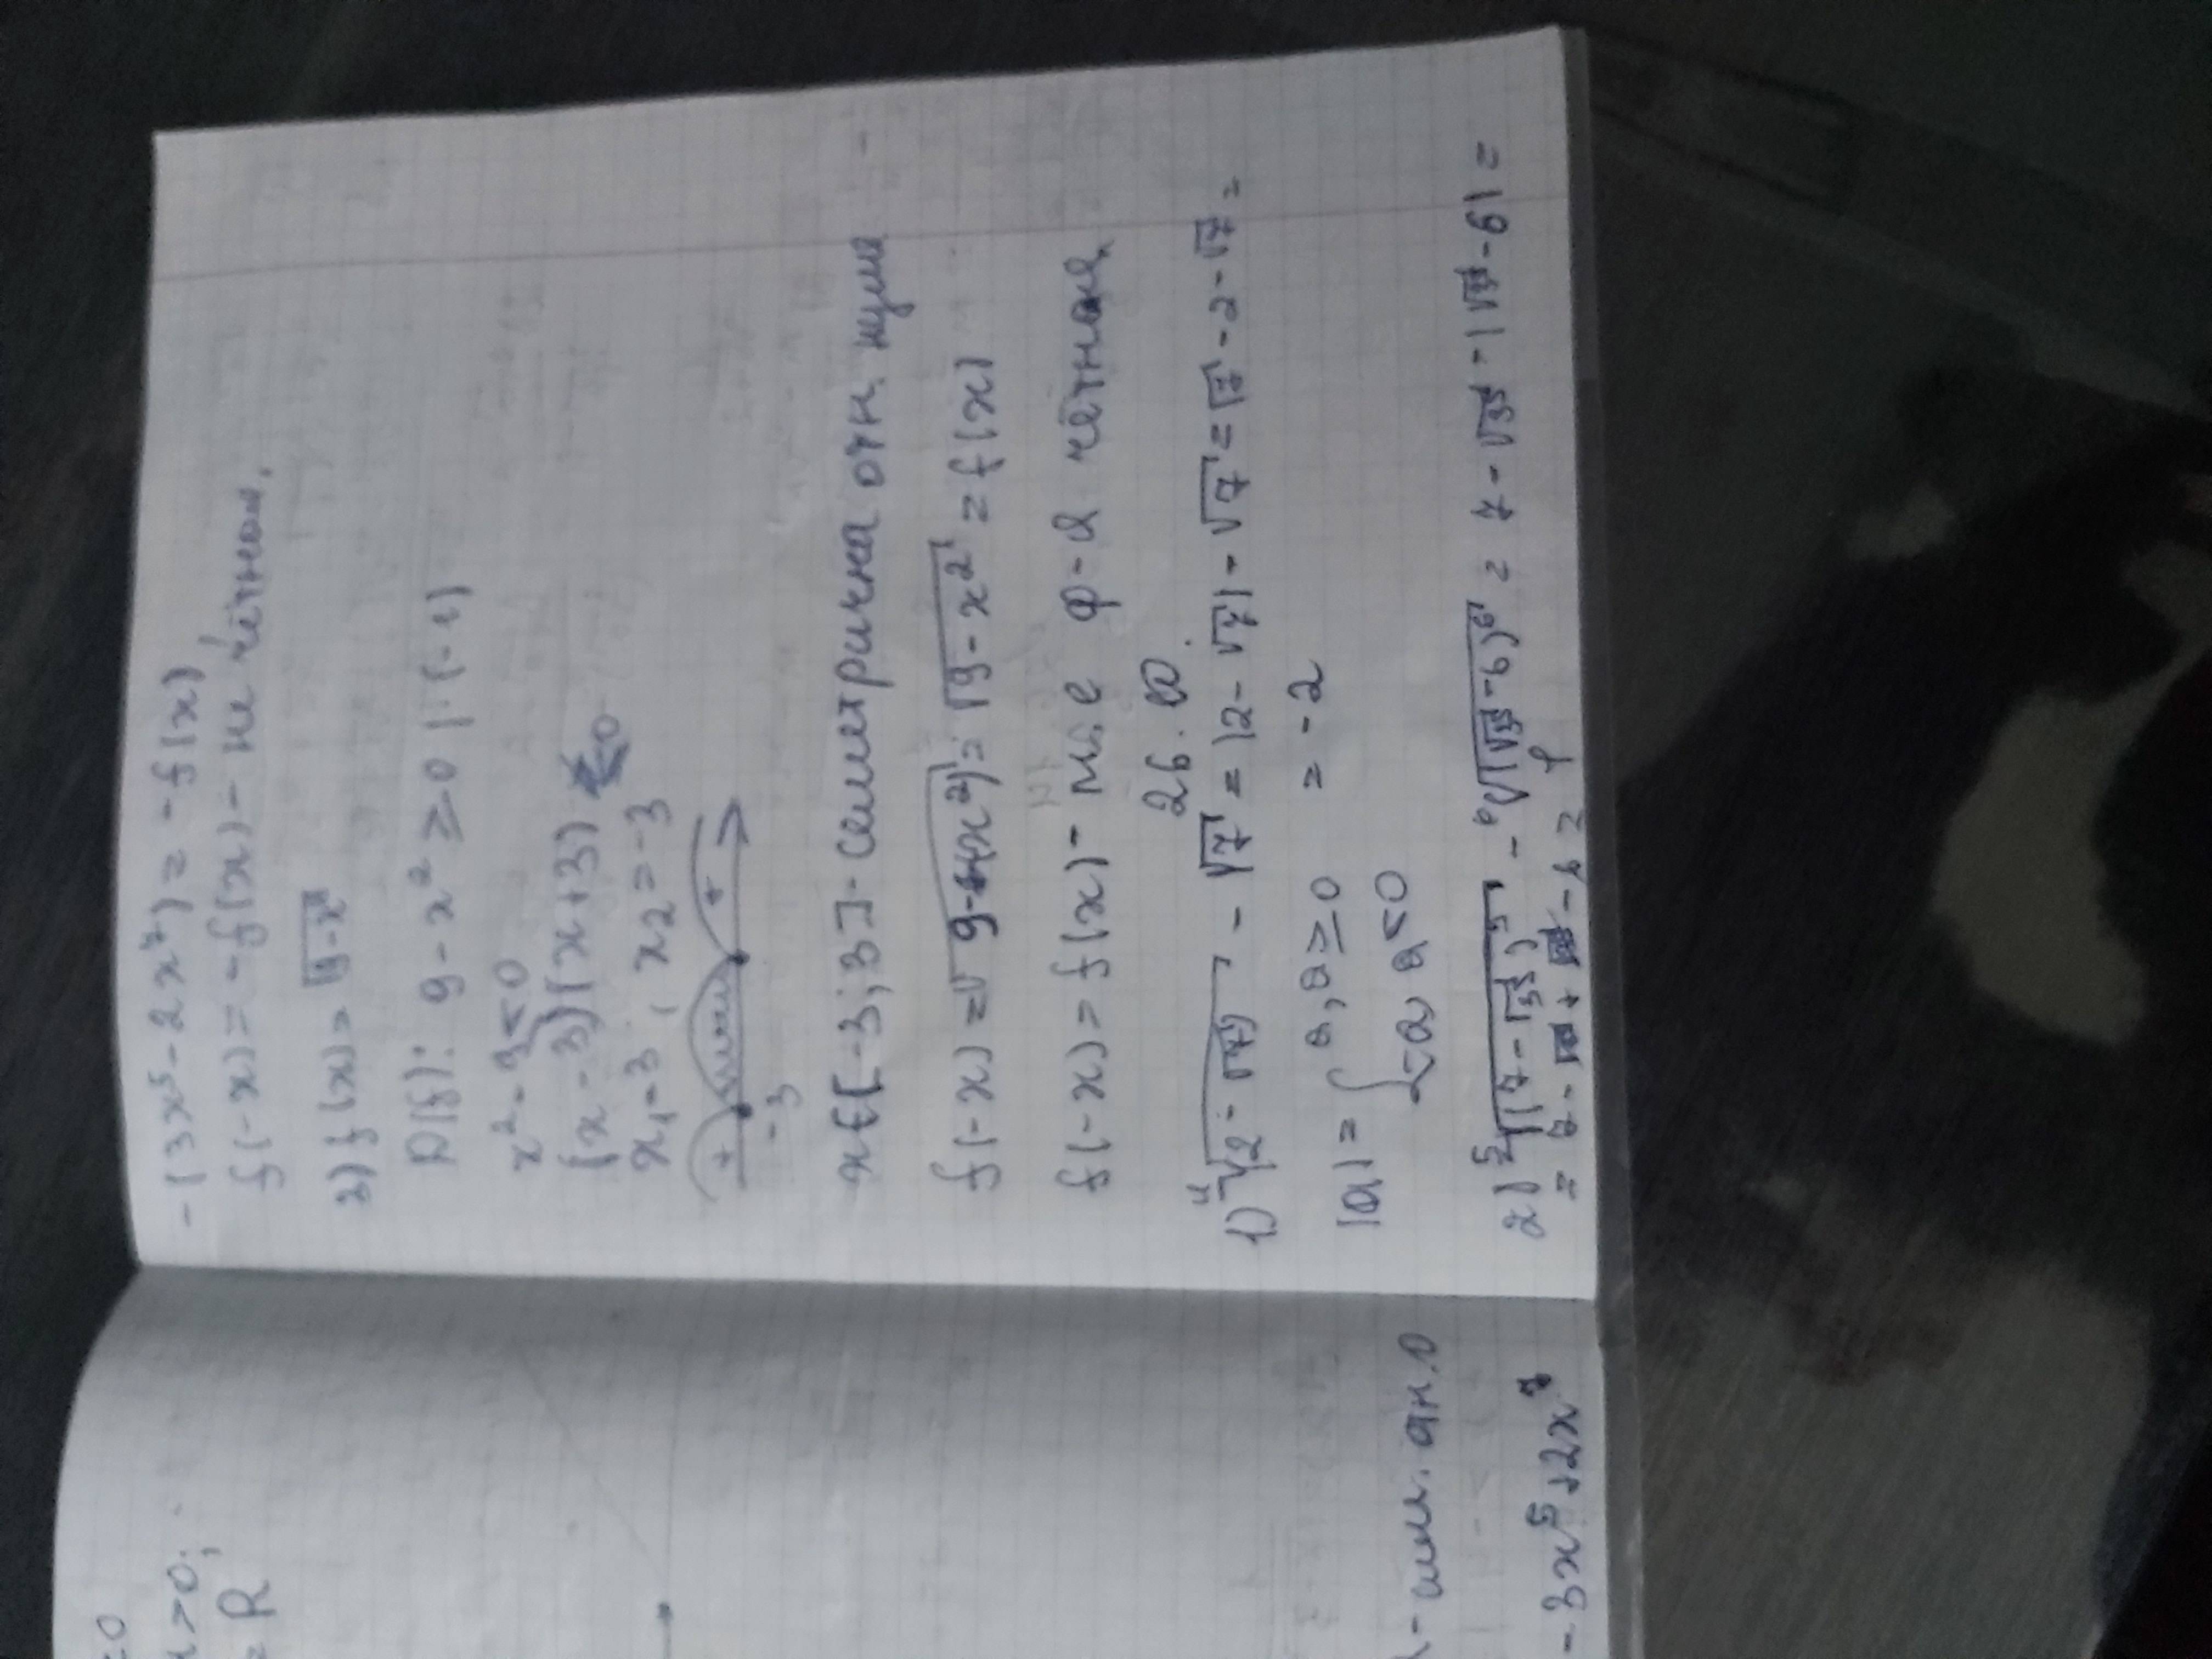 -(3x⁵-2x⁷)=-f(x)
f(-x)=-f(x)- не чётная.
f(x)=
D(f): 9-x²≥0 |·(-1)
x²-9≤0
(x-3)(x+3)≤0
x₁=3, x₂=-3
+ +
-3
x∈[-3;3]- симетрична отн. нуля
f(-x)=√9-(x²)=√9-x²=f(x)
f(-x)=f(x)- ф-я чётная
26.
1) -√7=|2-√7|-√7=√7-2-√7=
=-2
|a|={a, a≥0
{-a, a<0
2) ⁵√(7-√35)⁵-⁶√(√35-6)⁶=7-√35-|√35-6|=
=0
>0;
=R
-3x⁵+2x⁷